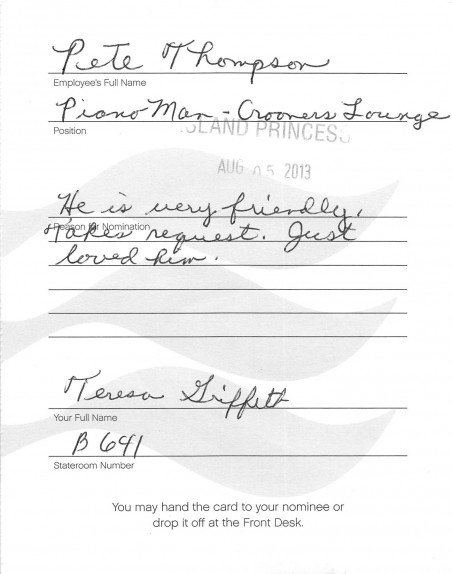 Pete Thompson
Employee's Full Name
Piano Man - Crooners Lounge
Position
ISLAND PRINCESS
AUG 05 2013
He is very friendly,
Reason for Nomination
& takes request. Just
loved him.
Teresa Griffeth
Your Full Name
B 641
Stateroom Number
You may hand the card to your nominee or
drop it off at the Front Desk.